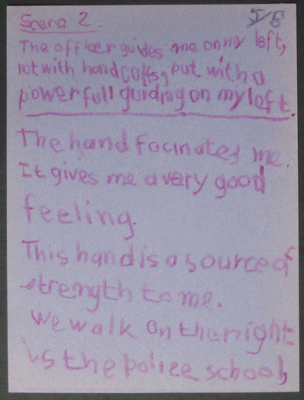 Scene 2.
5/8
The officer guides me on my left,
not with handcoffs, but with a
powerfull guiding on my left.
The hand facinates me.
It gives me a very good
feeling.
This hand is a source of
strength to me.
We walk on the right
is the police school,